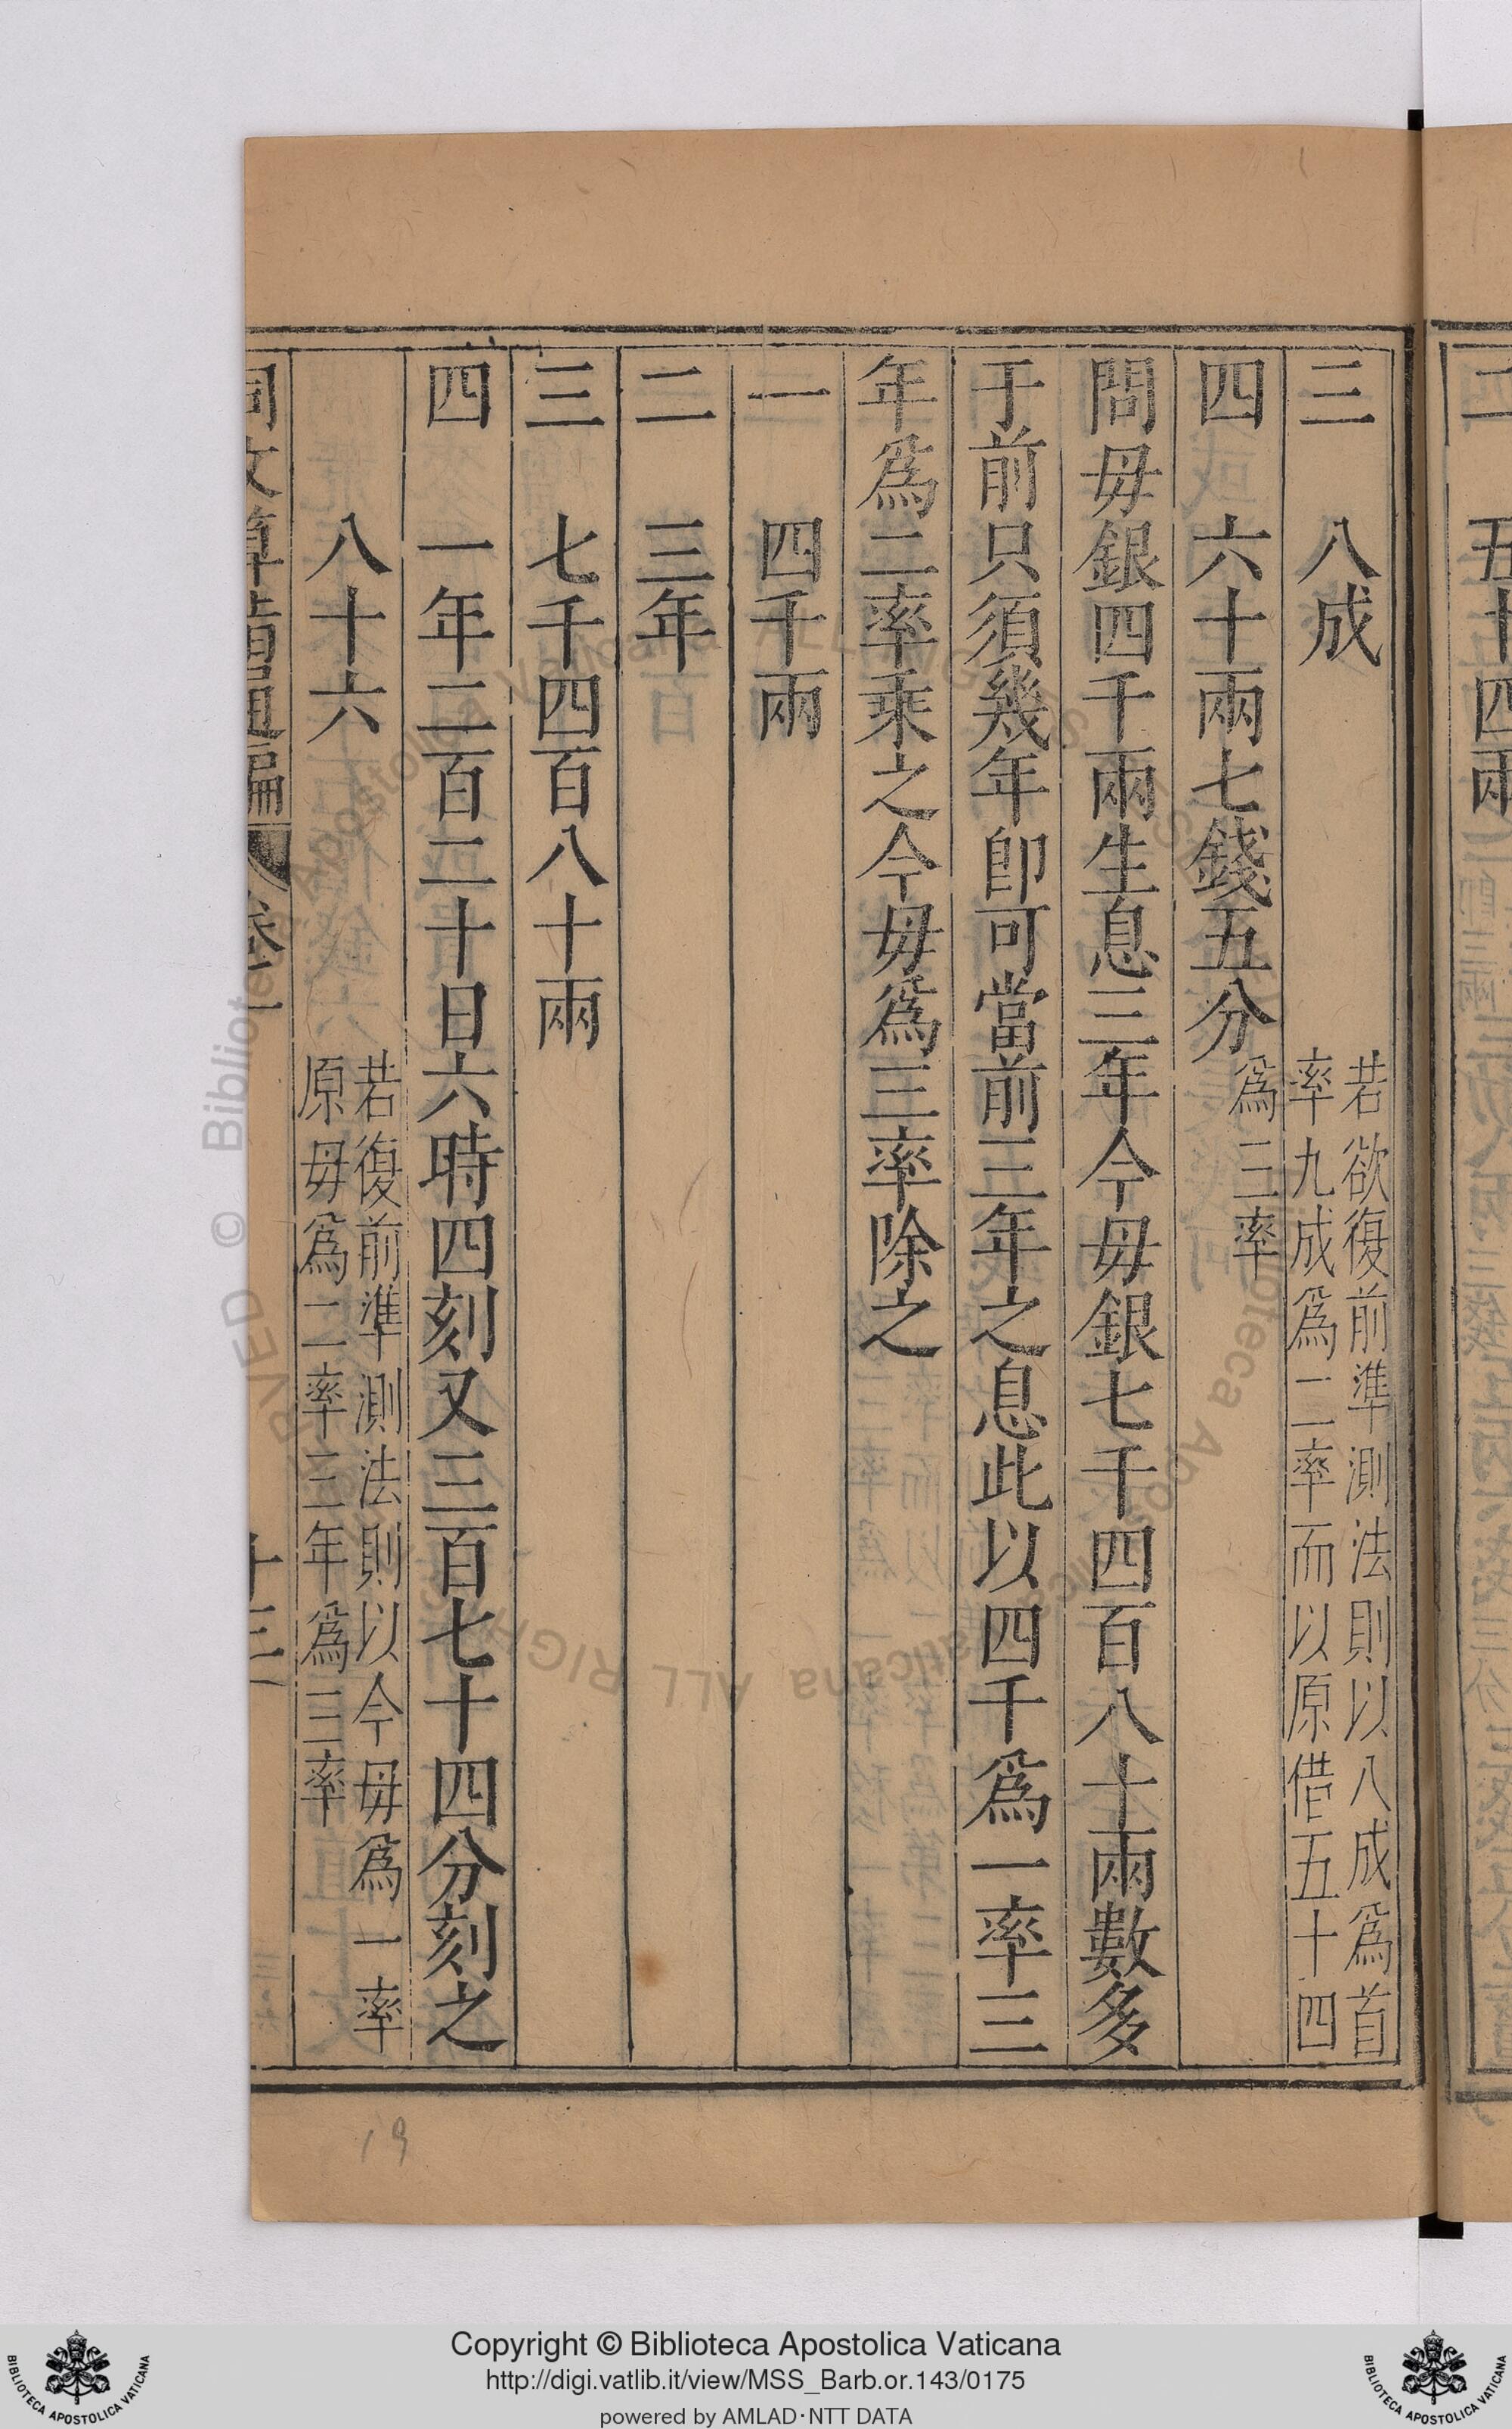 三　八成　若欲復前準測法則以八成爲首
率九成爲二率而以原借五十四
四　六十兩七錢五分　爲三率
問毋銀四千兩生息三年今毋銀七千四百八十兩數多
于前只須幾年卽可當前三年之息此以四千爲一率三
年爲二率乘之今毋爲三率除之
一　四千兩
二　三年
三　七千四百八十兩
四　一年二百二十日六時四刻又三百七十四分刻之
八十六　若復前準測法則以今毋爲一率
原毋爲二率三年爲三率
同文算指通編　卷一　十三
19
二　五十四兩
© Biblioteca Apostolica Vaticana ALL RIGHTS RESERVED
Copyright © Biblioteca Apostolica Vaticana
http://digi.vatlib.it/view/MSS_Barb.or.143/0175
powered by AMLAD·NTT DATA
BIBLIOTECA APOSTOLICA VATICANA
BIBLIOTECA APOSTOLICA VATICANA